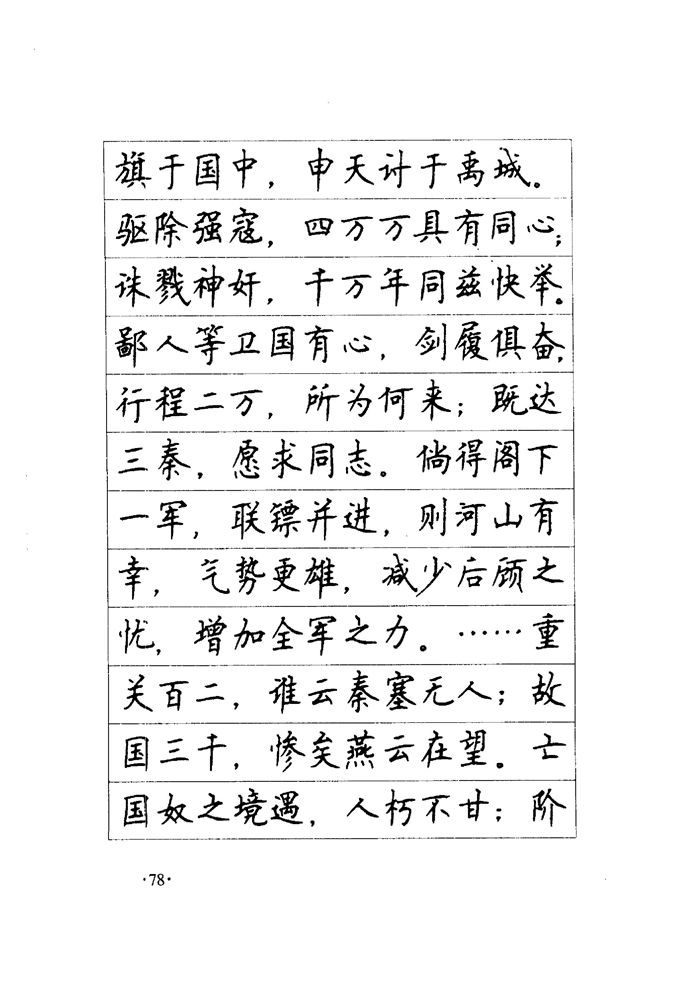 旗于国中，申天讨于禹城。
驱除强寇，四万万具有同心；
诛戮神奸，千万年同兹快举。
鄙人等卫国有心，剑履俱奋，
行程二万，所为何来；既达
三秦，愿求同志。倘得阁下
一军，联镖并进，则河山有
幸，气势更雄，减少后顾之
忧，增加全军之力。……重
关百二，谁云秦塞无人；故
国三千，惨矣燕云在望。亡
国奴之境遇，人朽不甘；阶
·78·